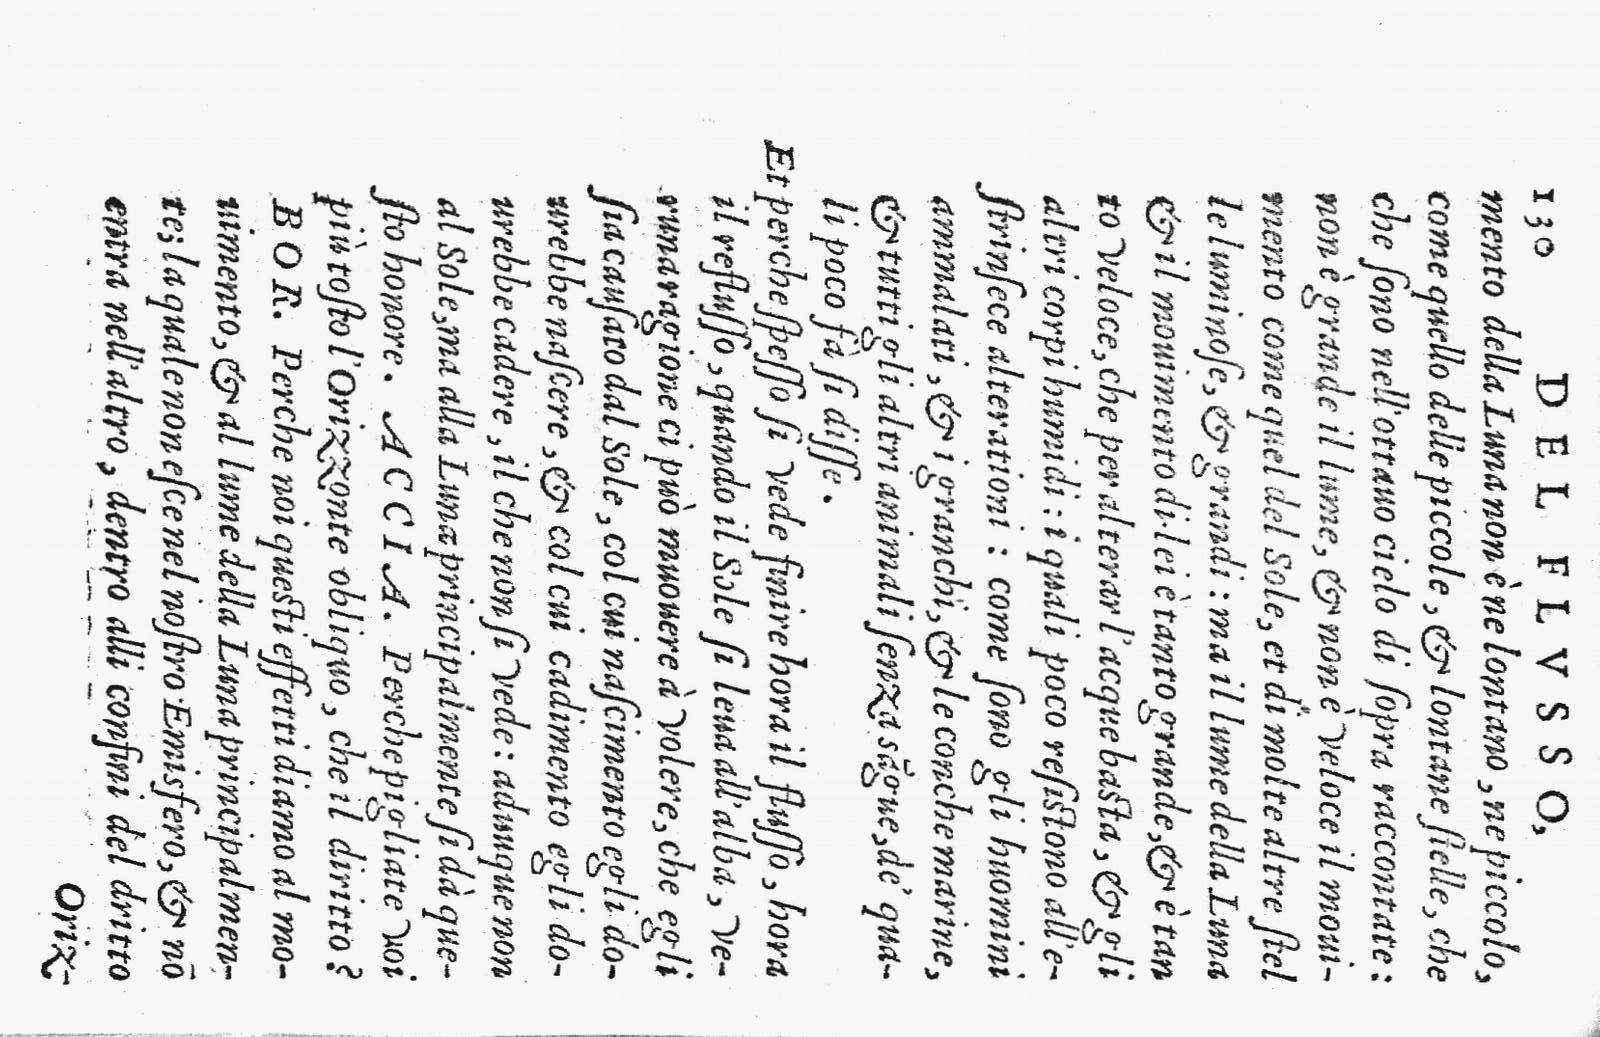 130 DEL FLVSSO,
mento della Luna non è ne lontano, ne piccolo,
come quello delle piccole, & lontane ſtelle, che
che ſono nell'ottauo cielo di ſopra raccontate:
non è grande il lume, & non è veloce il moui-
mento come quel del Sole, et di molte altre ſtel
le luminoſe, & grandi: ma il lume della Luna
& il mouimento di lei è tanto grande, & è tan
to veloce, che per alterar l'acque baſta, & gli
altri corpi humidi: i quali poco reſiſtono all'e-
ſtrinſece alterationi: come ſono gli huomini
ammalati, & i granchi, & le conche marine,
& tutti gli altri animali ſenza sāgue, de' qua-
li poco fà ſi diſſe.
Et perche ſpeſſo ſi vede finire hora il fluſſo, hora
il refluſſo, quando il Sole ſi leua all'alba, ve-
runa ragione ci può muouere à volere, che egli
ſia cauſato dal Sole, col cui naſcimento egli do-
urebbe naſcere, & col cui cadimento egli do-
urebbe cadere, il che non ſi vede: adunque non
al Sole, ma alla Luna principalmente ſi dà que-
ſto honore. ACCIA. Perche pigliate voi
più toſto l'Orizzonte obliquo, che il diritto?
BOR. Perche noi queſti effetti diamo al mo-
uimento, & al lume della Luna principalmen-
te; la quale non eſce nel noſtro Emisfero, & nō
entra nell'altro, dentro alli confini del dritto
Oriz-